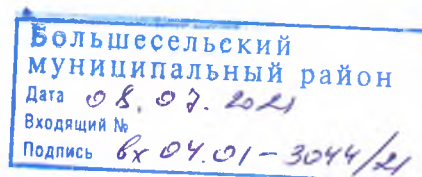 Большесельский
муниципальный район
Дата 08.07.2021
Входящий №
Подпись вх 04.01-3044/21